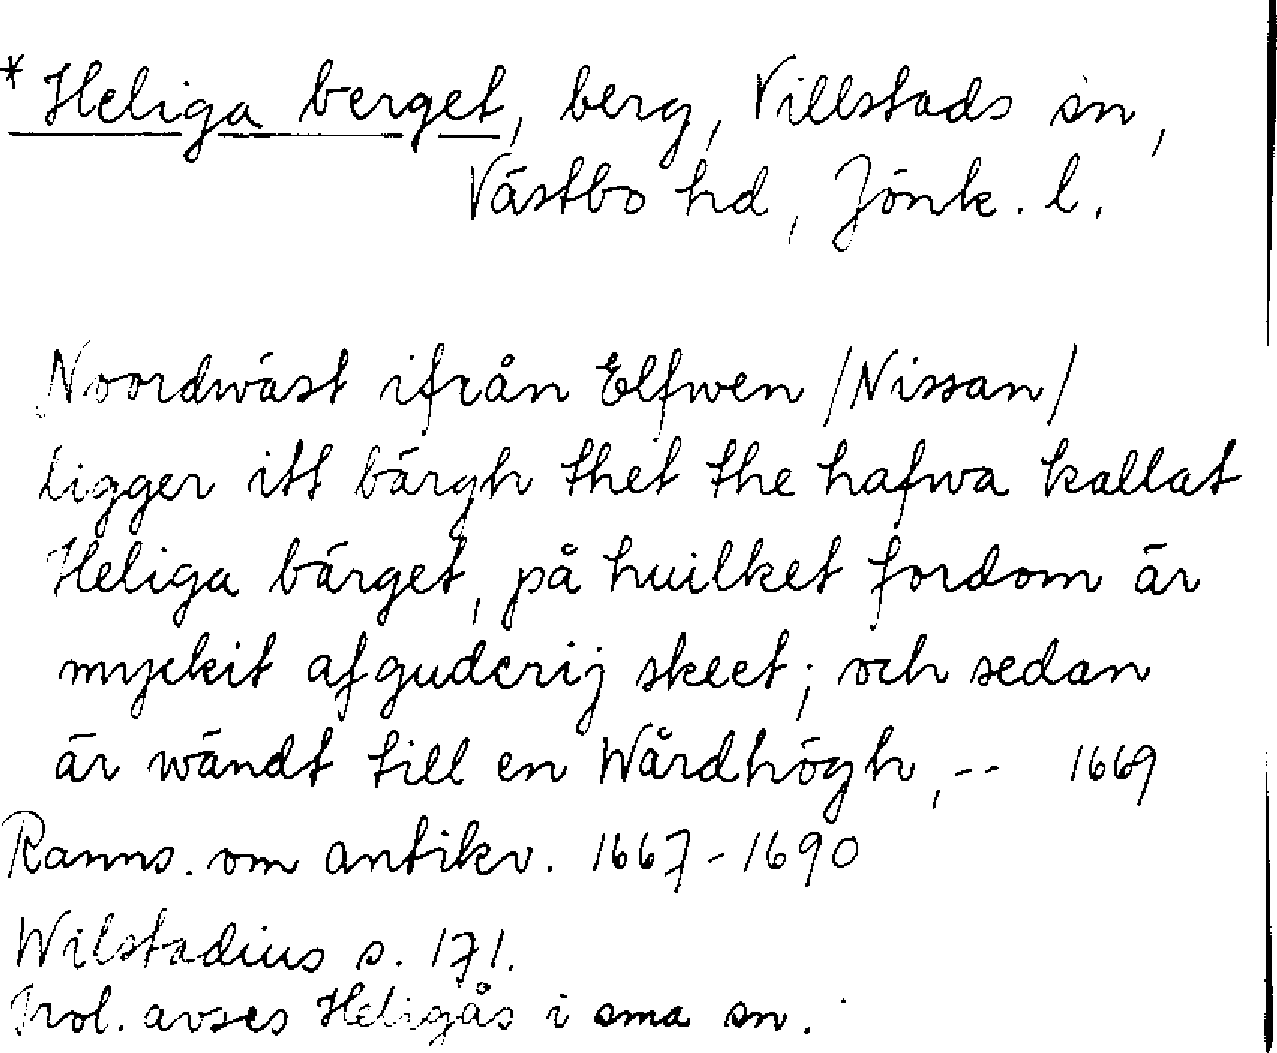 * Heliga berget, berg, Villstads sn,
Västbo hd, Jönk. l.
Noordwäst ifrån Elfwen /Nissan/
ligger itt bärgh thet the hafwa kallat
Heliga bärget, på huilket fordom är
myckit afguderij skeet; och sedan
är wändt till en Wårdhögh, -- 1669
Ranns. om antikv. 1667-1690
Wilstadius s. 171.
Trol. avses Heligås i sma sn.